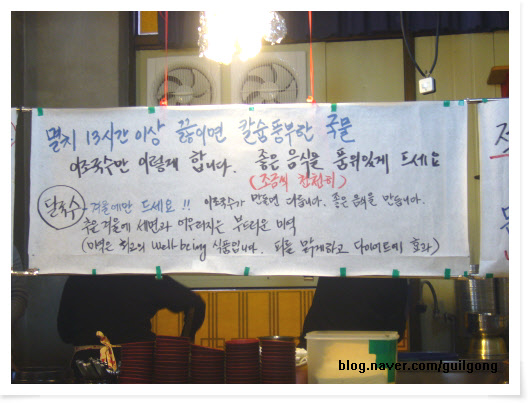 멸치 13시간 이상 끓이면 칼슘풍부한 국물
이조국수만 이렇게 합니다. 좋은 음식을 품위있게 드세요
(조금씩 천천히)
달국수 겨울에만 드세요!! 이조국수가 만들면 다릅니다. 좋은 음식을 만듭니다.
추운겨울에 세면과 어우러지는 부드러운 미역
(미역은 최고의 well-being 식품입니다. 피를 맑게하고 다이어트에 효과)
blog.naver.com/guilgong